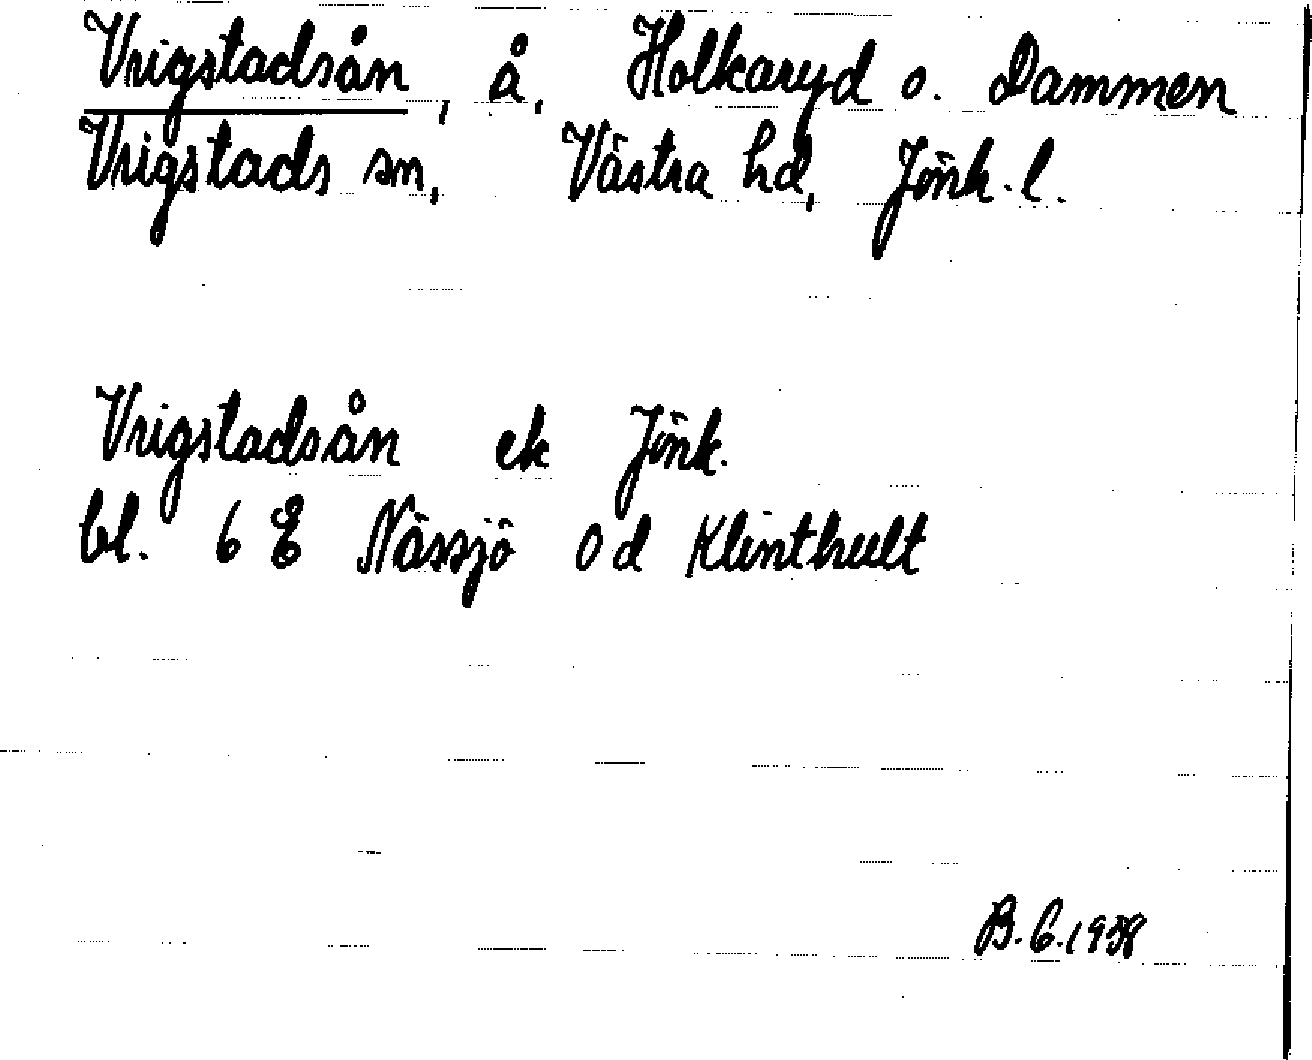 Vrigstadsån, å, Holkaryd o. Dammen
Vrigstads sn, Västra hd, Jönk. l.
Vrigstadsån ek Jönk.
bl. 6 E Nässjö 0 d Klinthult
B. E. 1958